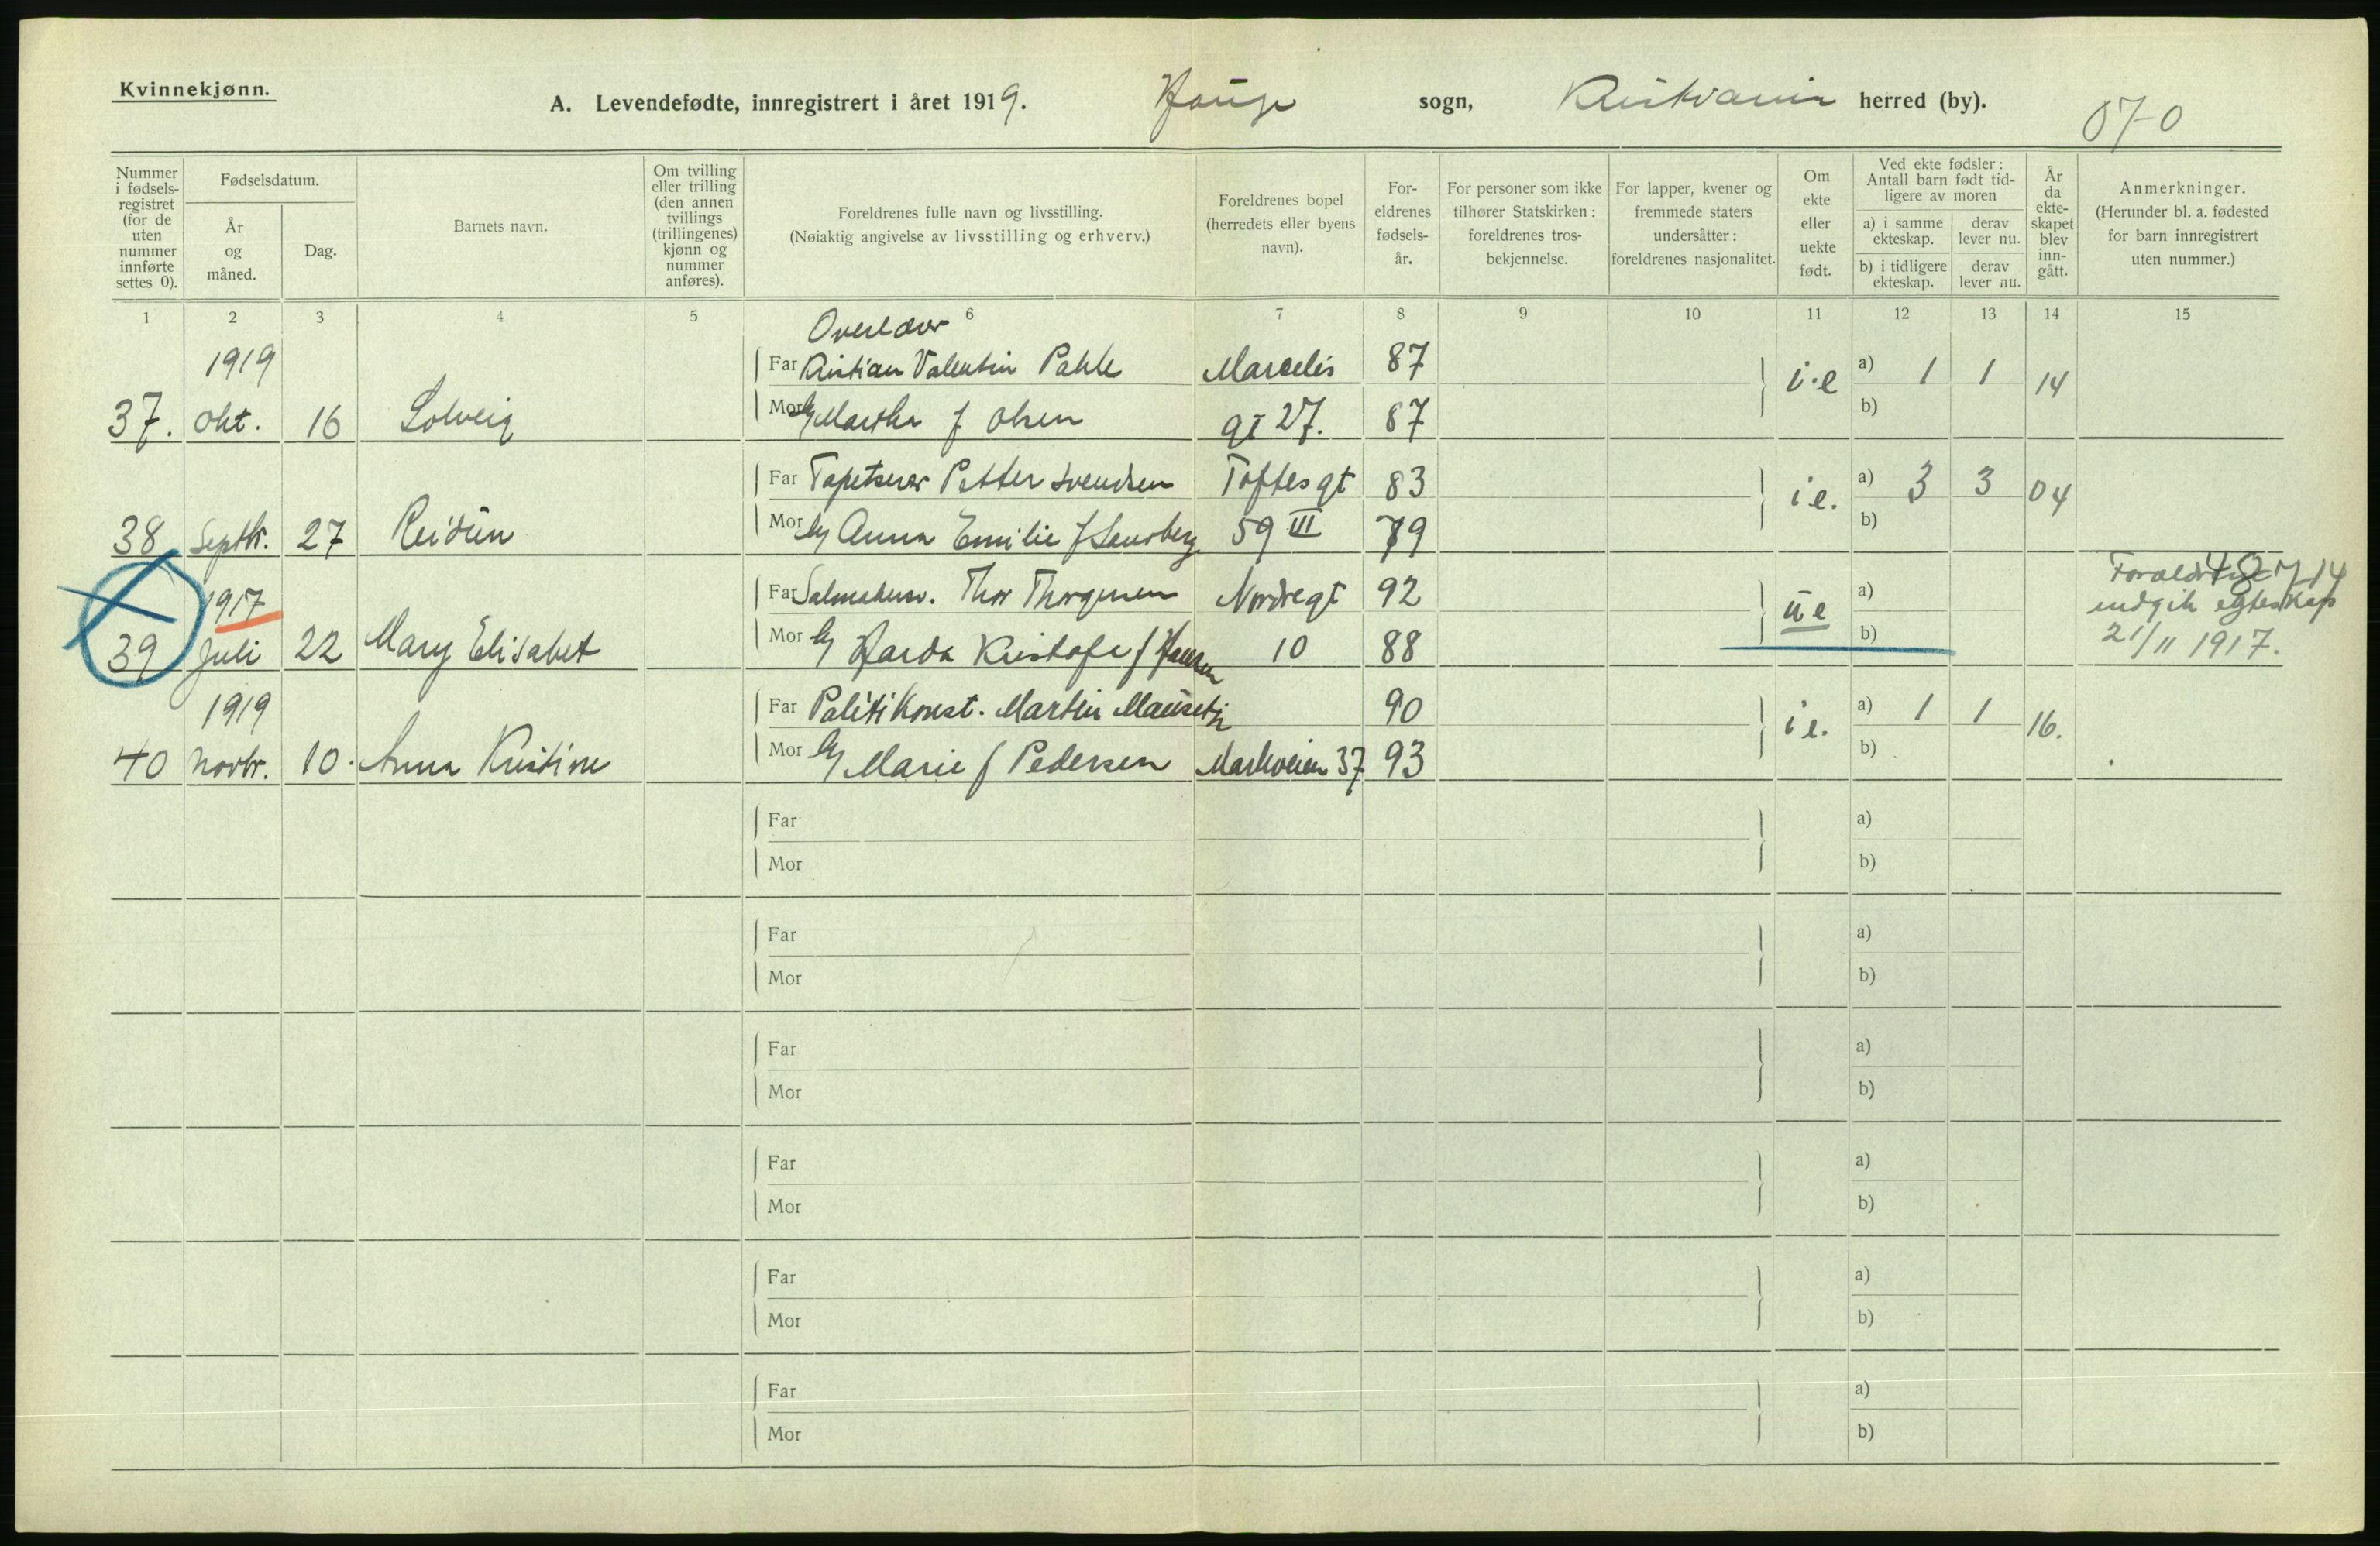 Kvinnekjønn.
A. Levendefødte, innregistrert i året 1919. Hauge sogn, Kristiania herred (by).
070
Nummer i fødsels-registret (for de uten nummer innførte settes 0).
Fødselsdatum.
År og måned.
Dag.
Barnets navn.
Om tvilling eller trilling (den annen tvillings (trillingenes) kjønn og nummer anføres).
Foreldrenes fulle navn og livsstilling.
(Nøiaktig angivelse av livsstilling og erhverv.)
Foreldrenes bopel (herredets eller byens navn).
For-eldrenes fødsels-år.
For personer som ikke tilhører Statskirken: foreldrenes tros-bekjennelse.
For lapper, kvener og fremmede staters undersåtter: foreldrenes nasjonalitet.
Om ekte eller uekte født.
Ved ekte fødsler: Antall barn født tid-ligere av moren
a) i samme ekteskap.
derav lever nu.
b) i tidligere ekteskap.
derav lever nu.
År da ekte-skapet blev inn-gått.
Anmerkninger.
(Herunder bl. a. fødested for barn innregistrert uten nummer.)
1 2 3 4 5 6 7 8 9 10 11 12 13 14 15
1919
Far Kristian Valentin Pahle Marcelis 87 i.e a) 1 1 14
37. Okt. 16 Solveig Mor Martha f Olsen gt 27. 87 b)
Far Tapetserer Petter Svendsen Toftesgt 83 i e. a) 3 3 04
38 Septbr. 27 Reidun Mor Anna Emilie f Sandberg 59 III 79 b)
1917 Far Thor Thorgersen Nordregt 92 u e a)
39 Juli 22 Mary Elisabet Mor f Hansen 10 88 b)
indgik egteskap
21/11 1917.
1919 Far Politikonst. Martin 90 i e. a) 1 1 16.
40 Novbr. 10. Anna Kristine Mor Marie f Pedersen Markveien 37 93 b)
Far a)
Mor b)
Far a)
Mor b)
Far a)
Mor b)
Far a)
Mor b)
Far a)
Mor b)
Far a)
Mor b)